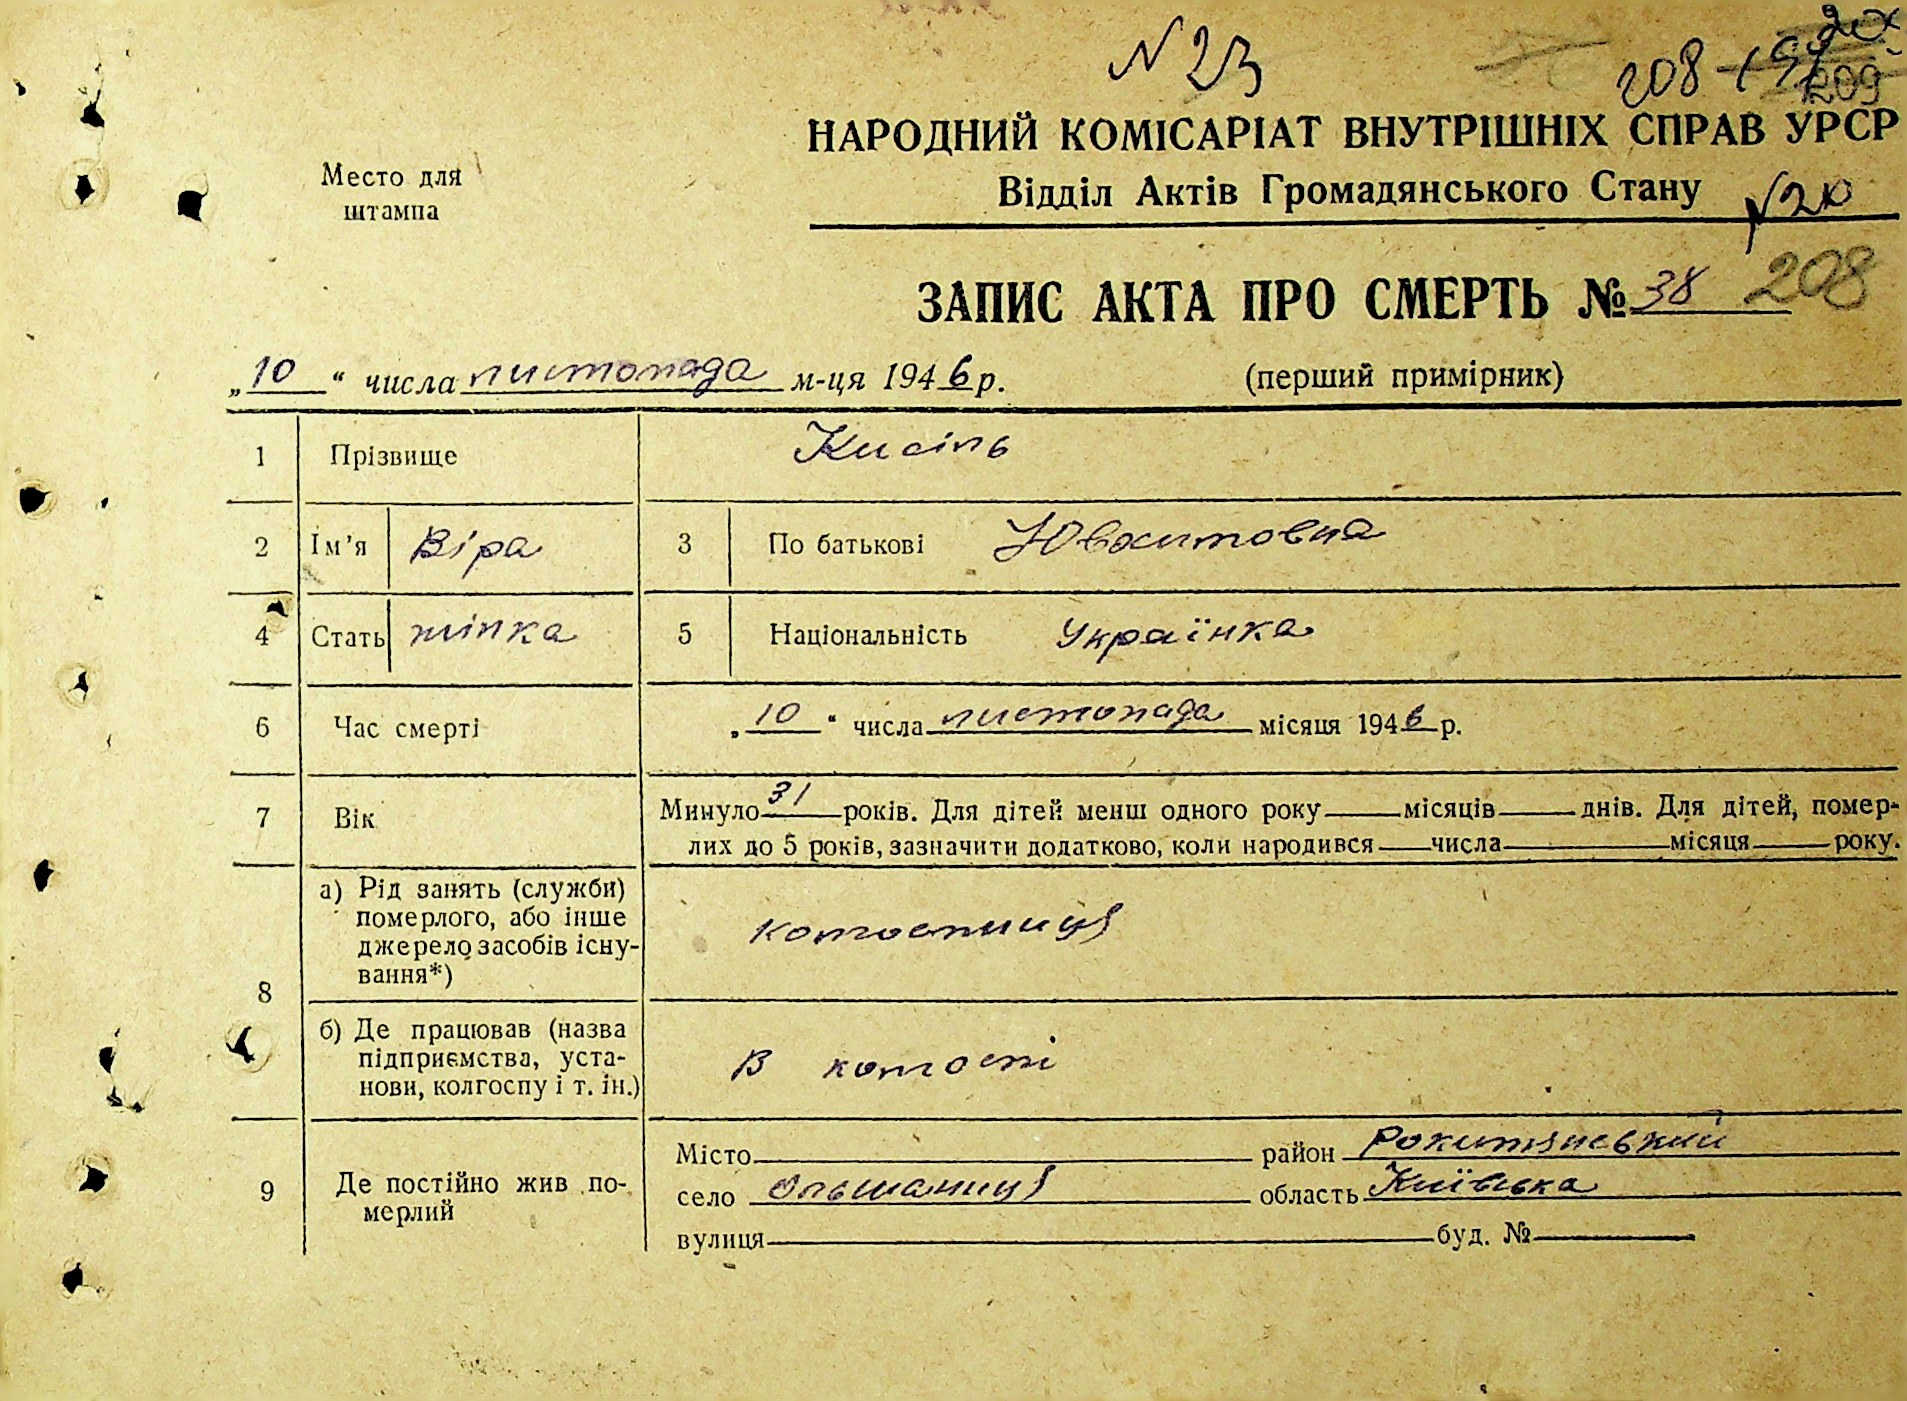 N 23
208
209
НАРОДНИЙ КОМІСАРІАТ ВНУТРІШНІХ СПРАВ УРСР
Место для
штампа
Відділ Актів Громадянського Стану
ЗАПИС АКТА ПРО СМЕРТЬ № 38 208
„10“ числа листопада м-ця 1946 р. (перший примірник)
1 Прізвище Кисіль
2 Ім'я Віра 3 По батькові
4 Стать жінка 5 Національність Українка
6 Час смерті „10“ числа листопада місяця 1946 р.
7 Вік Минуло 31 років. Для дітей менш одного року місяців днів. Для дітей, помер-
лих до 5 років, зазначити додатково, коли народився числа місяця року.
8 а) Рід занять (служби)
померлого, або інше
джерело засобів існу-
вання*)
колгоспниця
б) Де працював (назва
підприємства, уста-
нови, колгоспу і т. ін.)
В колгоспі
9 Де постійно жив по-
мерлий
Місто район Рокитянський
село Ольшаниця область Київська
вулиця буд. №